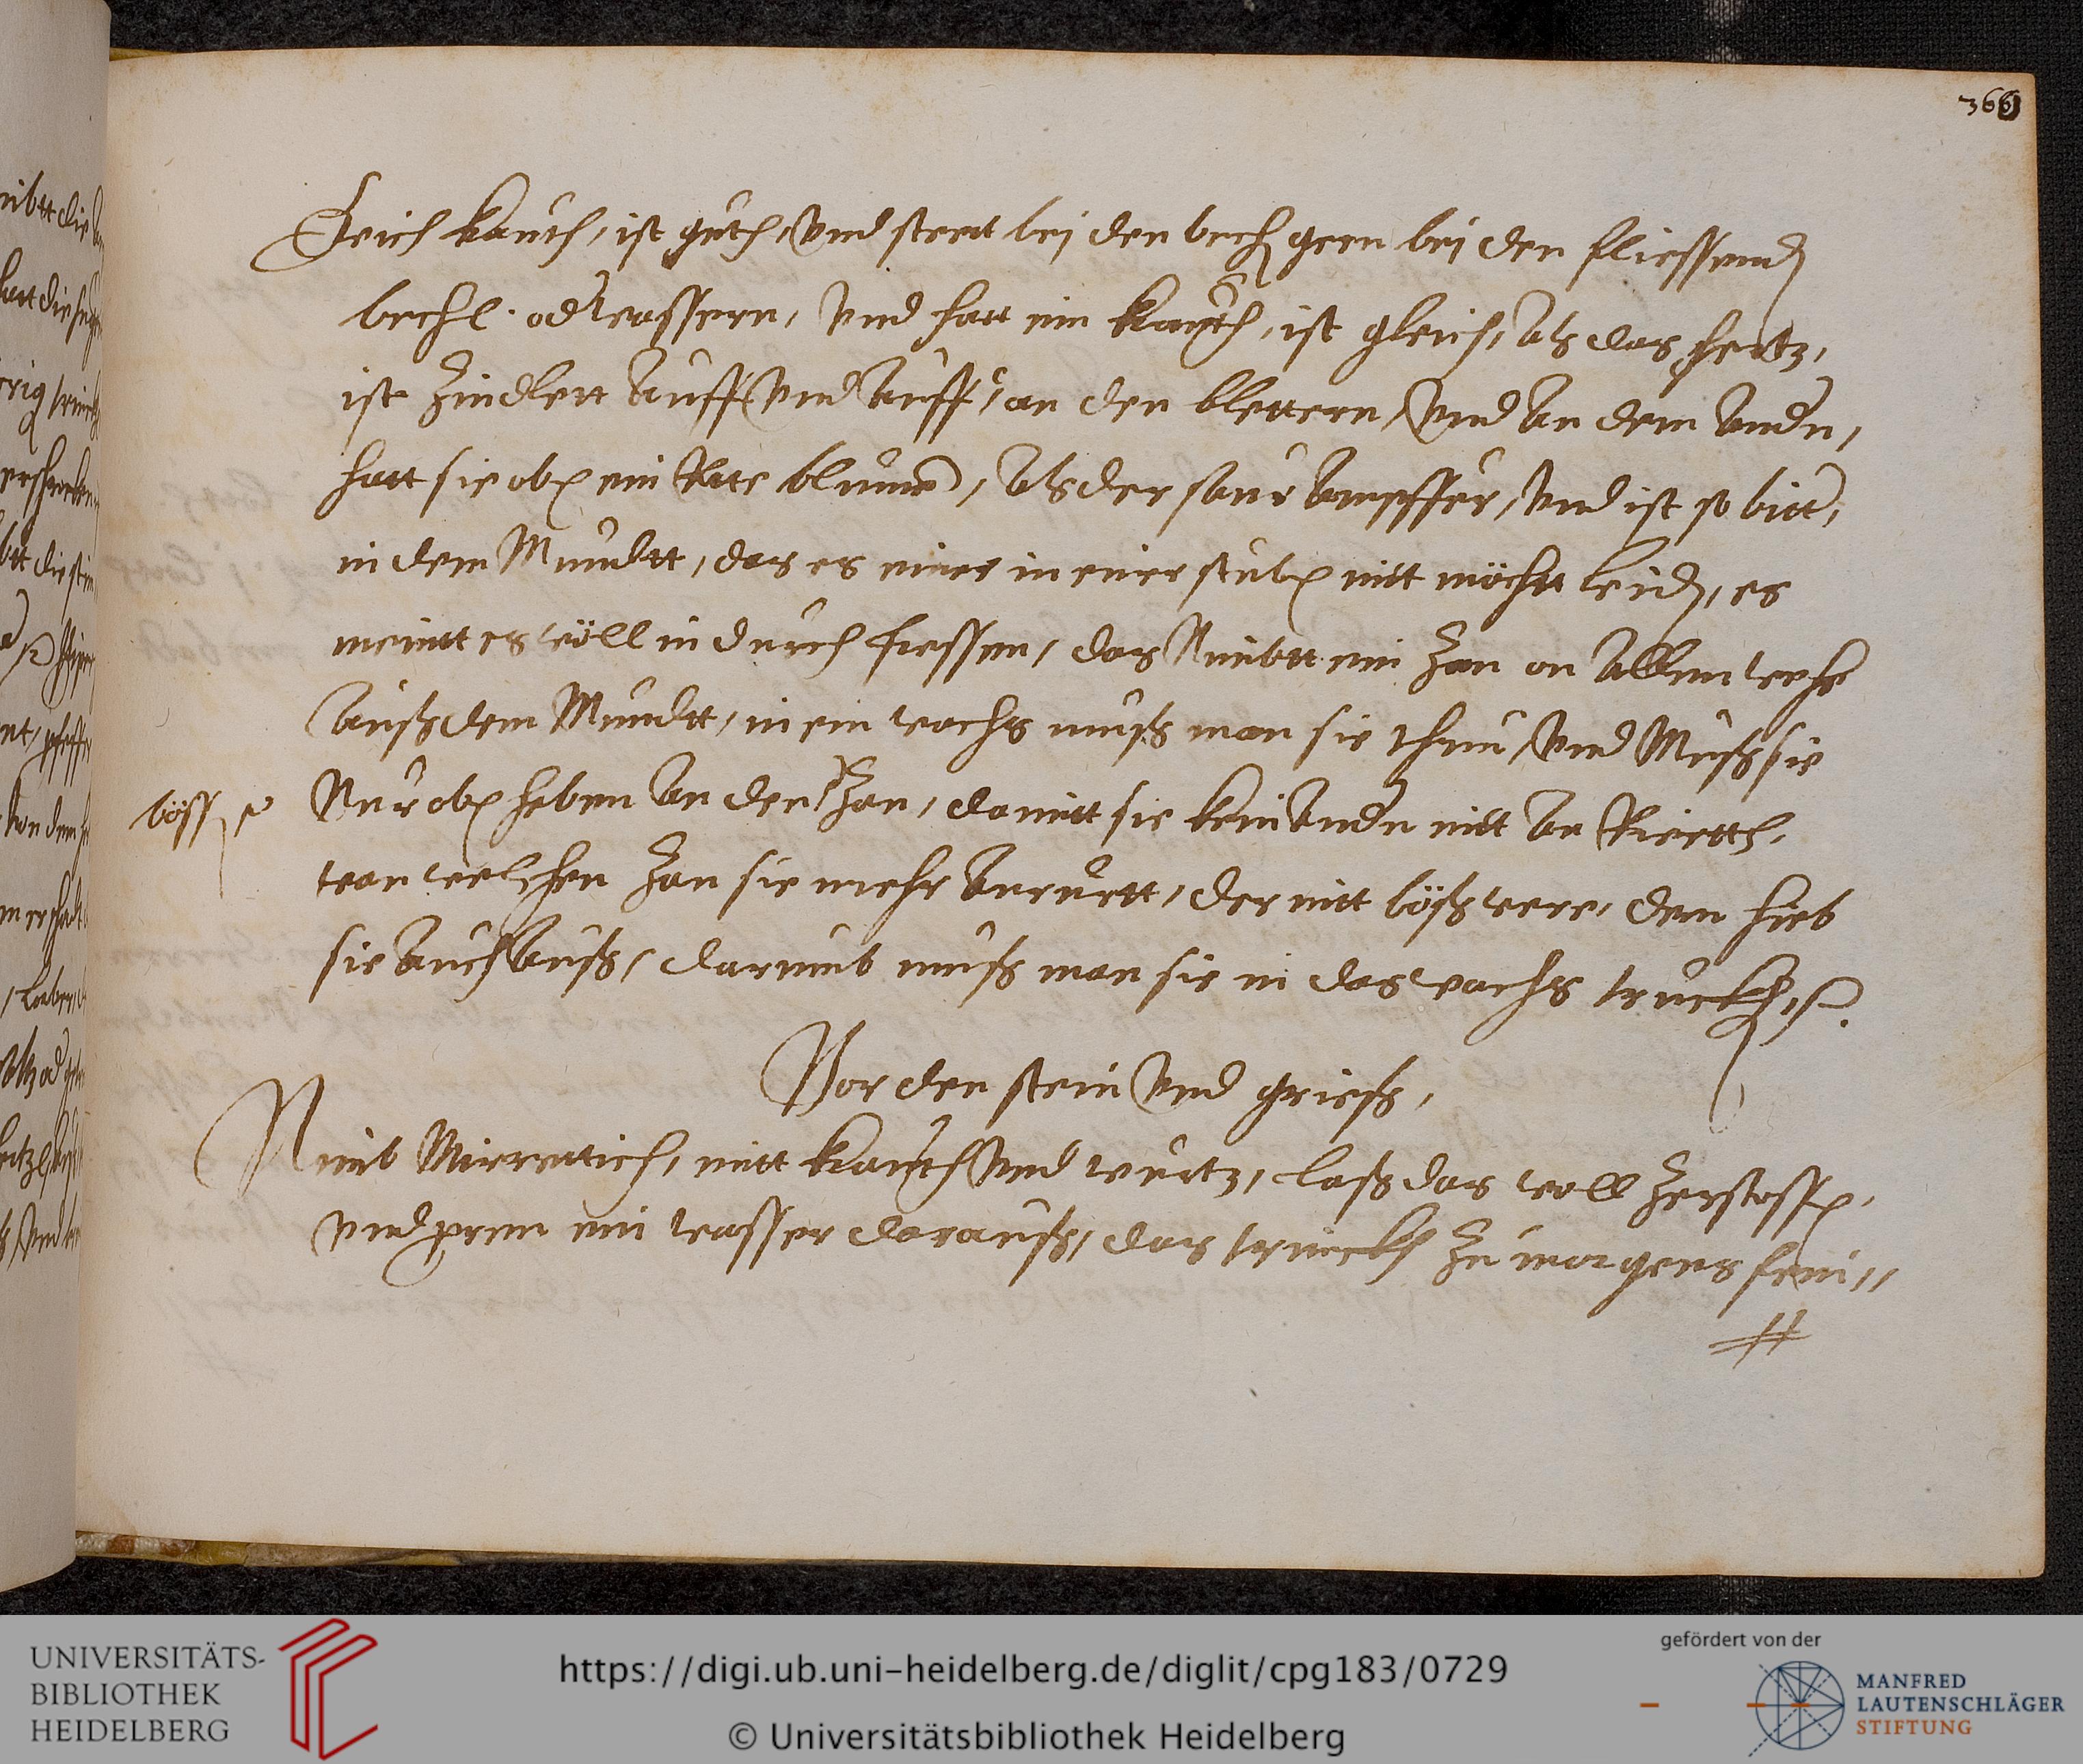 366
Reich kauch, ist guth, Vnd steet bei den bech gern bei den fliessend
bechl. od wassern, Vnd hatt ein krauth, ist gleich, Als das hertz,
ist Zindlett Auff Vnd Auff, an den blettern, Vnd An dem Andn,
hatt sie ob ein Rote blumen, Als der saur Ampffer, Vnd ist so bitt,
in dem Mundtt, das es einer in einer stub nitt möchtt leid, es
meintt es wöll in durch fressen, das Nimbtt ein Zan on Allem wehe
Auß dem Mundtt, in ein wachs muß man sie thun, Vnd Muß sie
böss
Nur ob heben An den Zan, damitt sie kein Andn nitt An Rierth,
wan welchen Zan sie mehr Anrurtt, der nitt böß were, dem hieb
sie Auch Auß, darumb muß man sie in das wachs truckh,
Vor den stein Vnd grieß,
Nimb Mirrettich, mitt krauth Vnd wurtz, laß das woll Zerstoss,
Vnd pren ein wasser darauß, das trinckh Zu morgens frui,,
UNIVERSITÄTS-
BIBLIOTHEK
HEIDELBERG
https://digi.ub.uni-heidelberg.de/diglit/cpg183/0729
© Universitätsbibliothek Heidelberg
gefördert von der
MANFRED
LAUTENSCHLÄGER
STIFTUNG